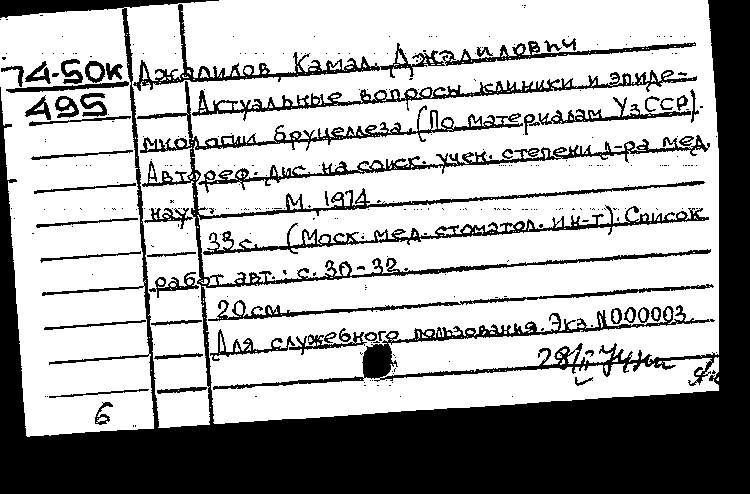 74-50к Джалилов, Камал Джалилович
495 Актуальные вопросы клиники и эпиде-
миологии бруцеллеза. (По материалам УзССР).
Автореф. дис. на соиск. учен. степени д-ра мед.
наук. М., 1974.
33 с. (Моск. мед. стоматол. ин-т). Список
работ авт.: с. 30-32.
20 см.
Для служебного пользования. Экз. №000003.
6